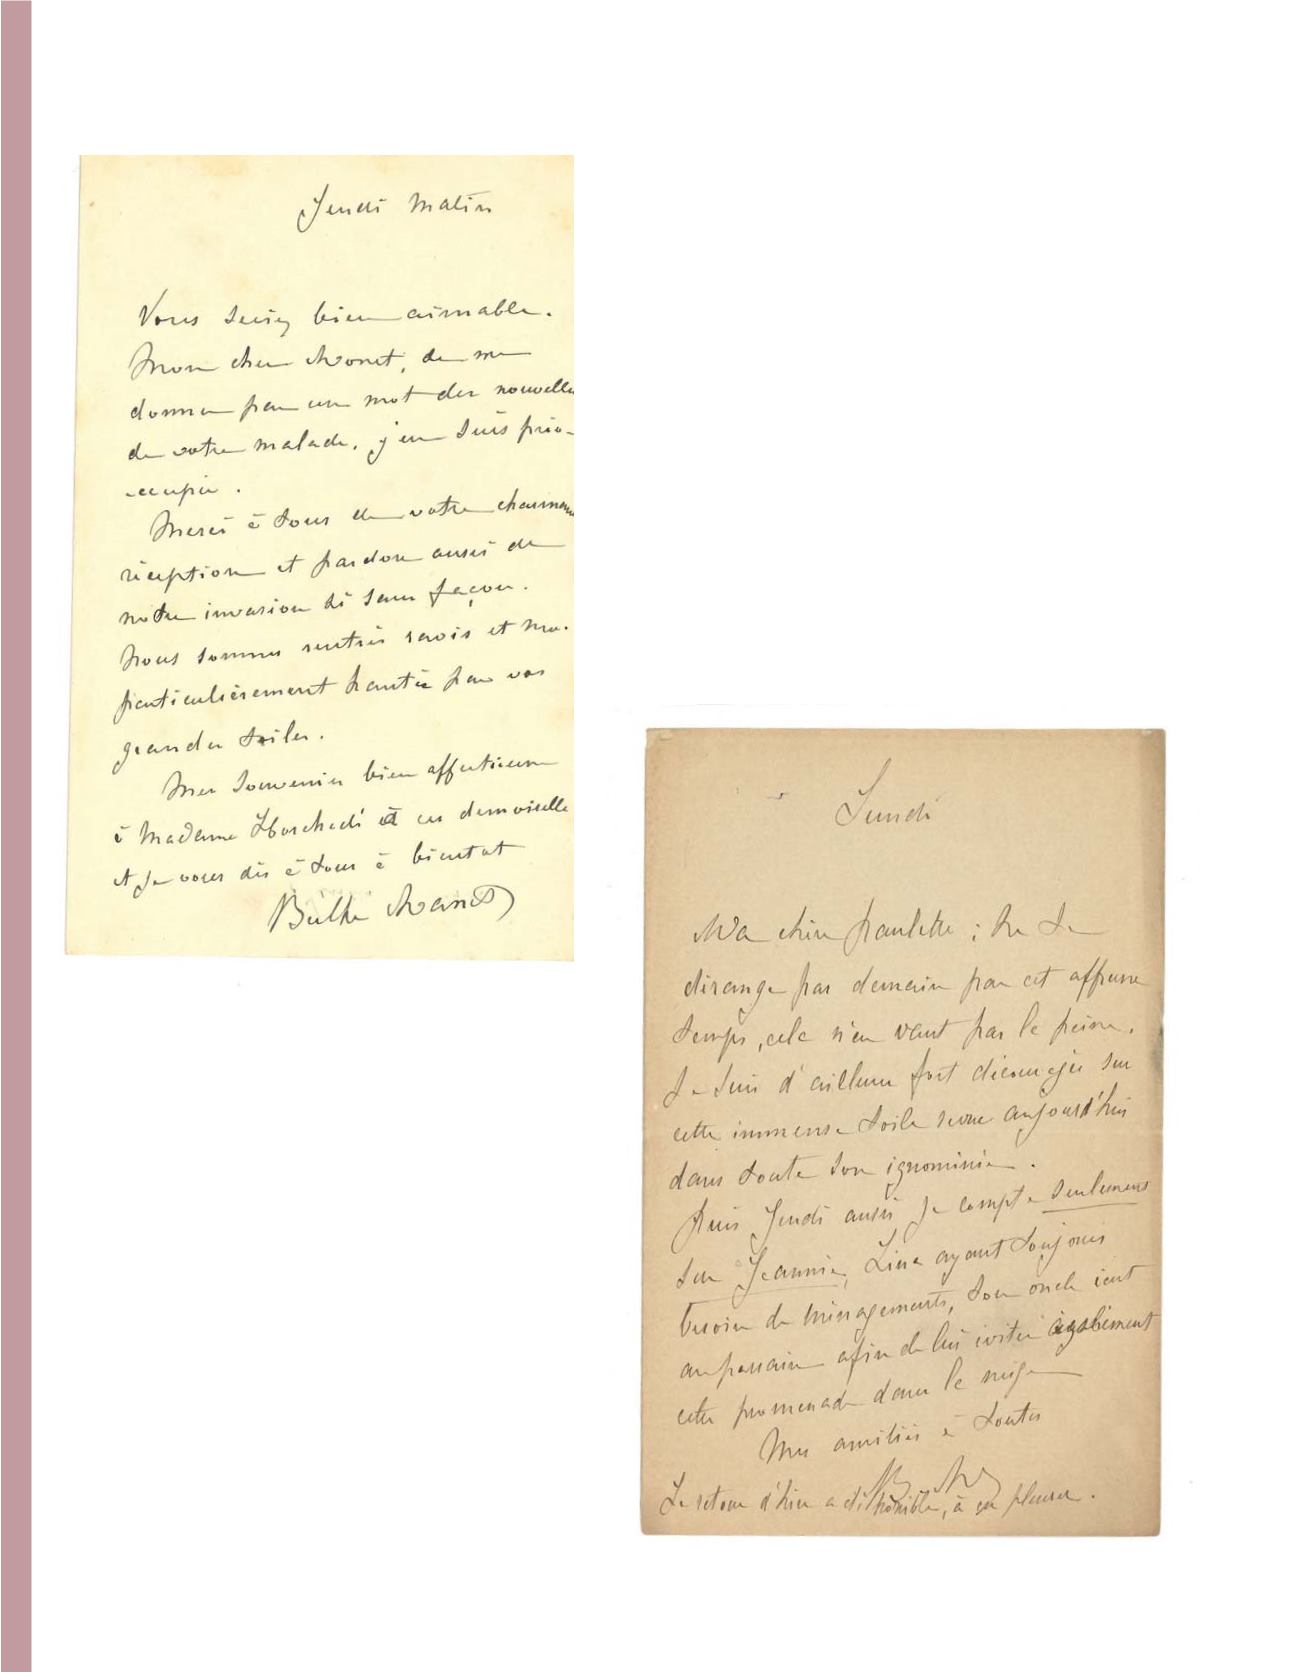 Jeudi matin
Vous seriez bien aimable.
Mon cher Monet, de me
donner par un mot des nouvelle
de votre malade. j'en suis préo-
-ccupée.
Merci à tous de votre charman
réception et pardon aussi de
notre invasion si sans façon.
Nous sommes rentrés ravis et moi
particulièrement hantée par vos
grandes toiles.
Mes souvenirs bien affectueux
à Madame Hoschedé et ces demoiselle
et je vous dis à tous à bientot
Berthe Manet
Lundi
Ma chère Paulette; ne te
dérange pas demain par cet affreux
temps, cela n'en vaut pas la peine.
Je suis d'ailleurs fort découragée sur
cette immense toile revue aujourd'hui
dans toute son ignominie.
Puis Jeudi aussi je compte seulement
sur Jeannie, ayant toujours
besoin de ménagements, son oncle
afin de lui éviter également
cette promenade dans la neige
Mes amitiés à toutes
B M
Le retour d'hier a été horrible, à en pleurer.